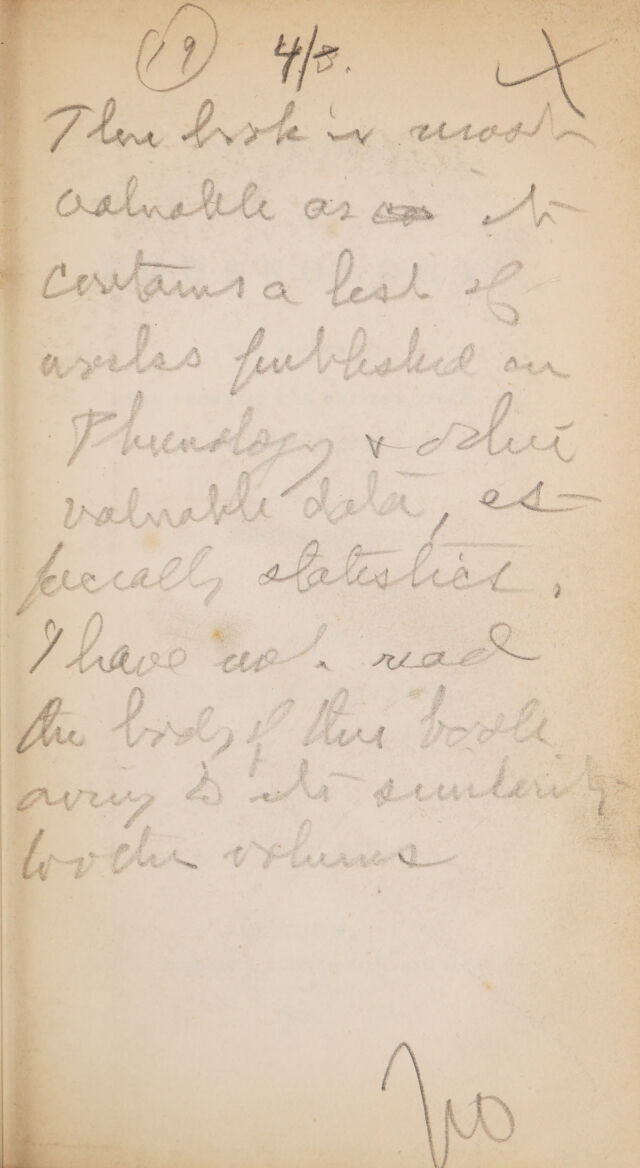 19 4/3.
This book is most
valuable as it
contains a list of
works published on
Phrenology & other
valuable data, es-
pecially statistics.
I have not read
the body of this book
owing to its similarity
to other volumes